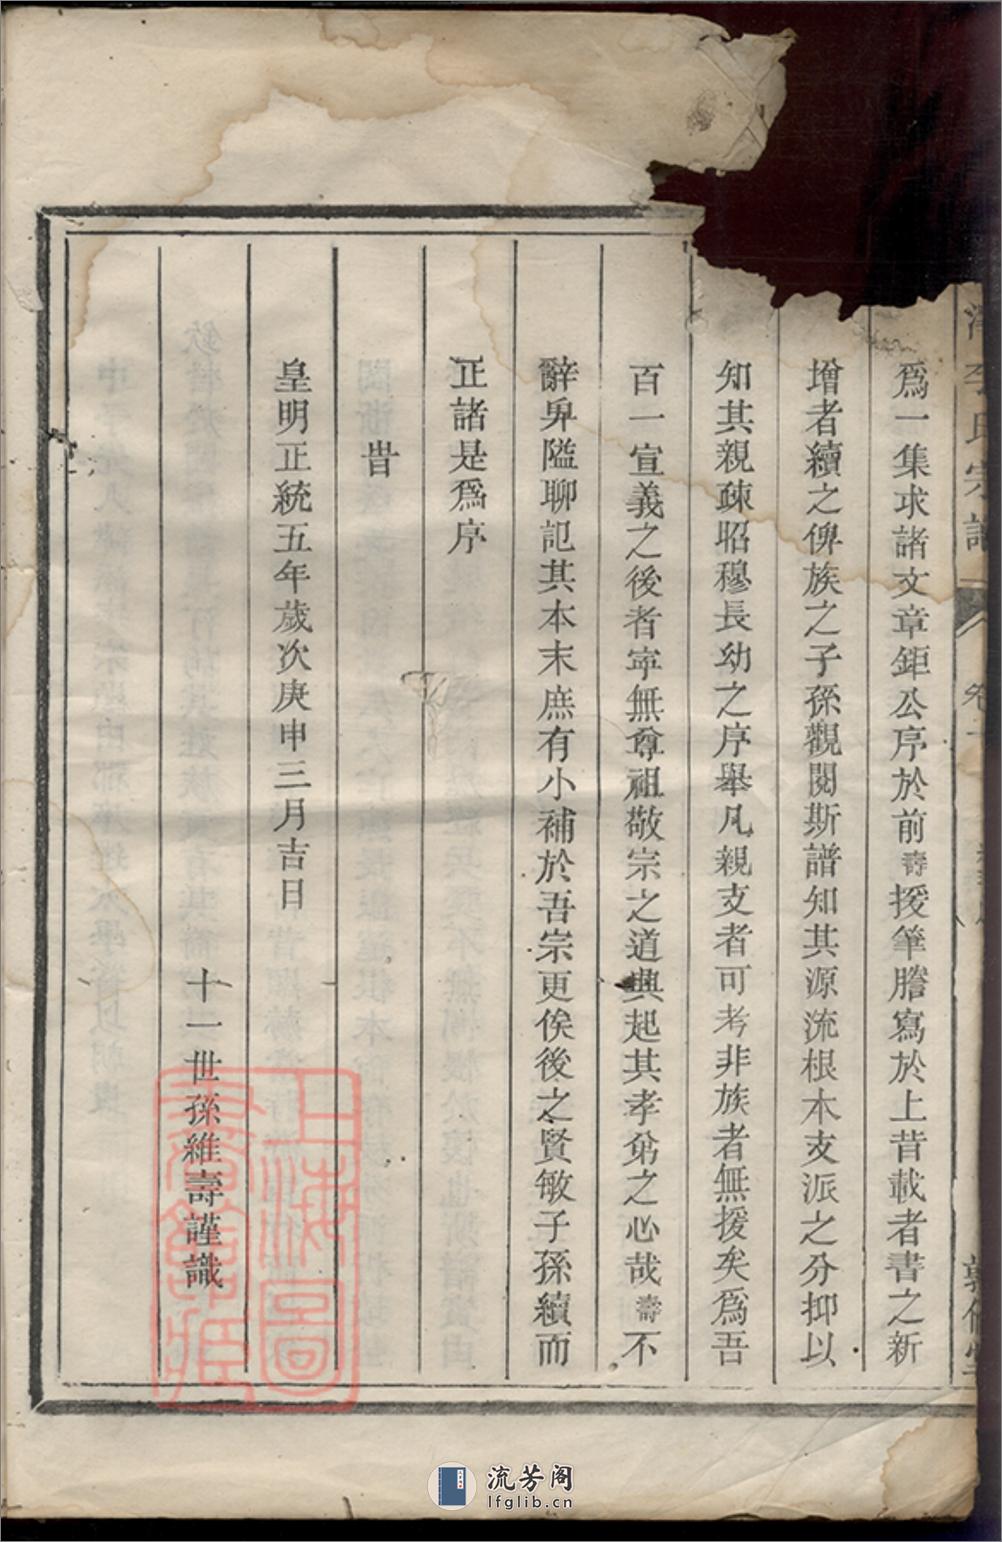 李氏宗譜
卷一
爲一集求諸文章鉅公序於前壽援筆謄寫於上昔載者書之新
增者續之俾族之子孫觀閱斯譜知其源流根本支派之分抑以
知其親疎昭穆長幼之序舉凡親支者可考非族者無援矣爲吾
百一宣義之後者寧無尊祖敬宗之道興起其孝弟之心哉壽不
辭卑隘聊記其本末庶有小補於吾宗更俟後之賢敏子孫續而
正諸是爲序
旹
皇明正統五年歲次庚申三月吉日
十一世孫維壽謹識
上海圖書館藏
流芳阁
lfglib.cn